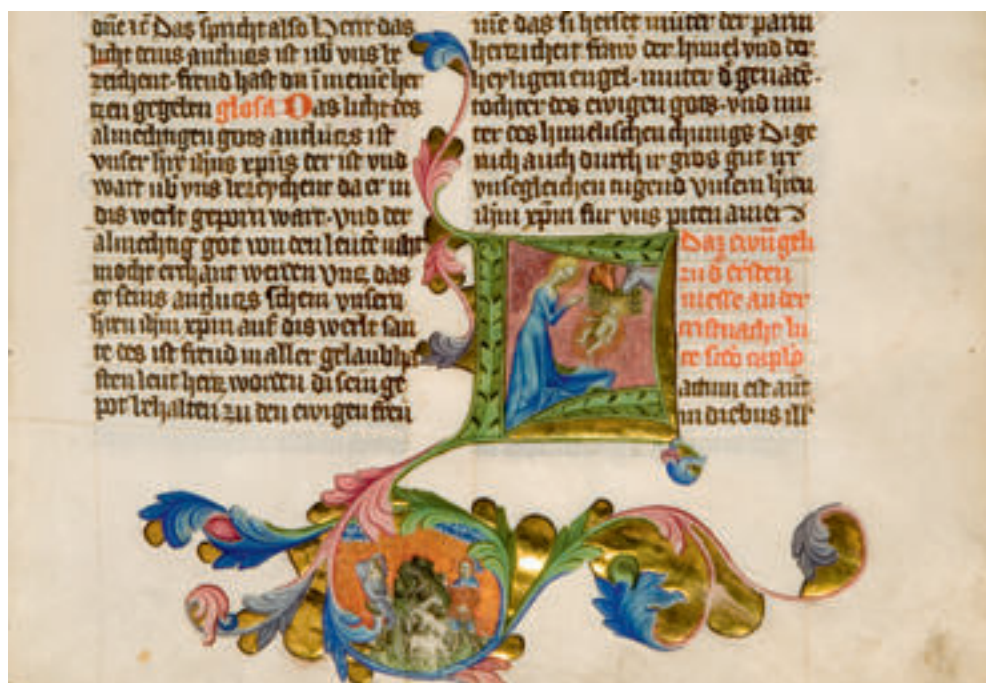 dñe ic̃ Das spricht also Herr das
licht deins antluczs ist ub̃ vns be
zeichent· freud hast du ĩ meinẽ her
czen gegeben glosa Das licht des
almechtigen gots antluczs ist
vnser hr̃r ihũs xp̃us der ist vnd
wart ub̃ vns bezeychent da er in
dis werlt geporn wart· vnd der
almechtig got von den leutẽ nicht
mocht erchant werden Vncz das
er seins antluczs schein vnsern
hren ihm̃ xp̃m auf dis werlt san
te des ist freud in aller gelaubha
sten leut hercz worden di sein ge
pot behalten zu den ewigen freu
nie das si heiset muter der parm
herczicheit fraw der himel vnd der
heyligen engel· muter d̾ genadẽ·
tochter des ewigen gots· vnd mu
ter des himelischen chunigs Di ge
ruch auch durch ir gros gut vñ
vnsegleichen tugend vnsern h̃ren
ihm̃ xp̃m fur vns piten amen
Daz ewãgeli
zu d̾ ersten
messe an der
cristnacht lu
ce sc̃do caplo
actum est aut̃
in diebus ill'